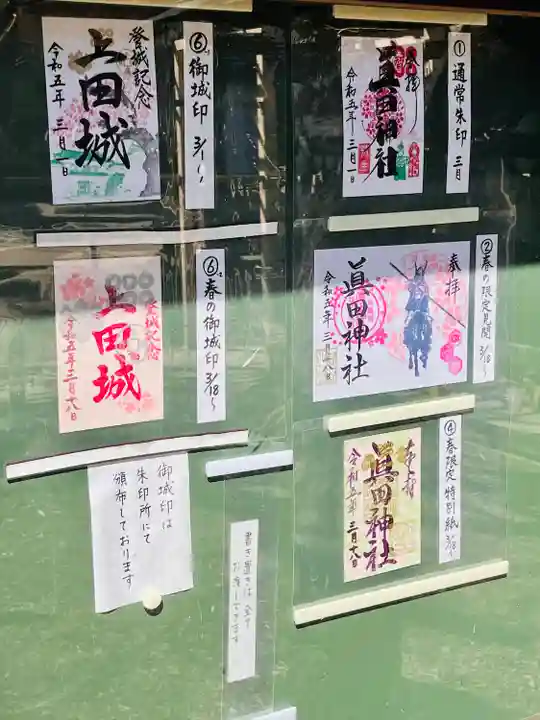 ①通常朱印 三月
奉拝
眞田神社
令和五年 三月一日
②春の限定見開 3/18〜
奉拝
眞田神社
令和五年 三月十八日
④春限定 特別紙 3/18〜
奉拝
眞田神社
令和五年 三月十八日
⑥御城印 3/1〜
登城記念
上田城
令和五年 三月一日
⑥春の御城印 3/18〜
登城記念
上田城
令和五年 三月十八日
御城印は
朱印所にて
頒布しております
書き置きは全て